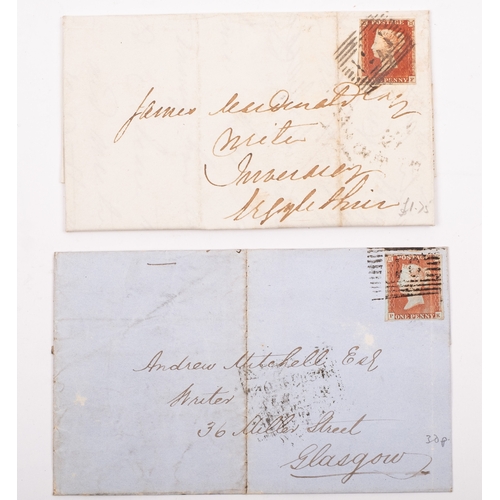 POSTAGE
PENNY
James MacDonald Esq
Writer
Inveraray
Argyleshire
£1.75
POSTAGE
ONE PENNY
Andrew Mitchell Esq
Writer
36 Miller Street
Glasgow